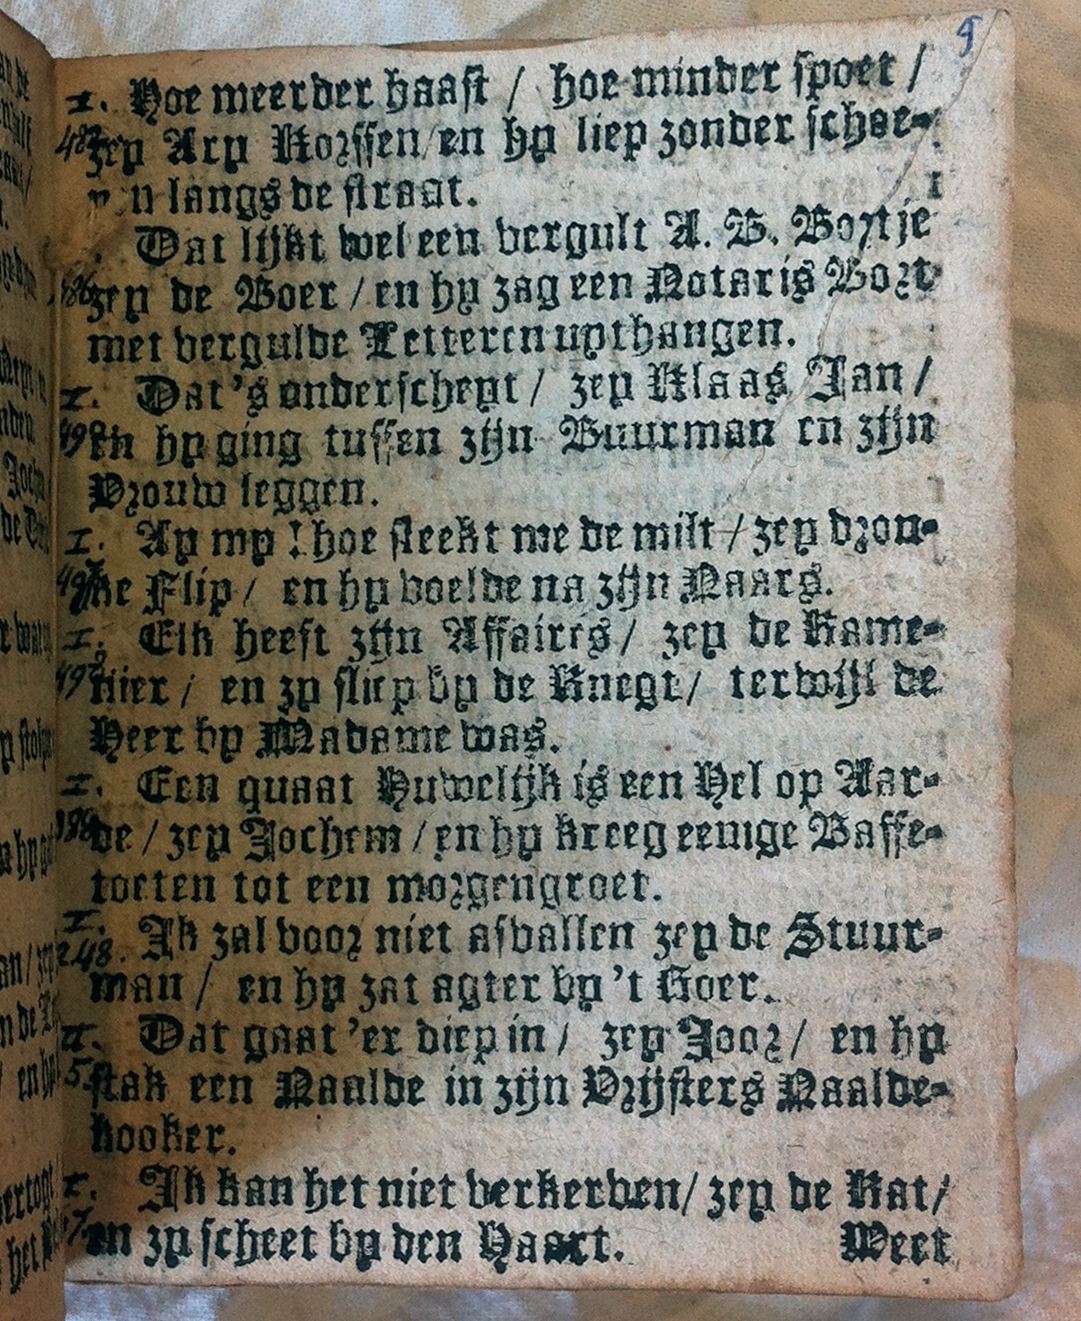 Hoe meerder haast / hoe minder spoet /
zey Ary Korssen / en hy liep zonder schoe-
langs de straat.
Dat lijkt wel een vergult A. B. Bortje
zey de Boer / en hy zag een Notaris Bort
met vergulde Letteren uythangen.
Dat 's onderscheyt / zey Klaas Jan /
en hy ging tussen zijn Buurman en zijn
Vrouw leggen.
Ay my ! hoe steekt me de milt / zey dron-
ke Flip / en hy voelde na zijn Naars.
Elk heeft zijn Affaires / zey de Kame-
nier / en zy sliep by de Knegt / terwijl de
Heer by Madame was.
Een quaat Huwelijk is een Hel op Aar-
de / zey Jochem / en hy kreeg eenige Baffe-
toeten tot een morgengroet.
248. Ik zal voor niet afvallen zey de Stuur-
man / en hy zat agter by 't Roer.
Dat gaat 'er diep in / zey Joor / en hy
stak een Naalde in zijn Vrijsters Naalde-
kooker.
Ik kan het niet verkerven / zey de Kat /
en zy scheet by den Haart. Weet